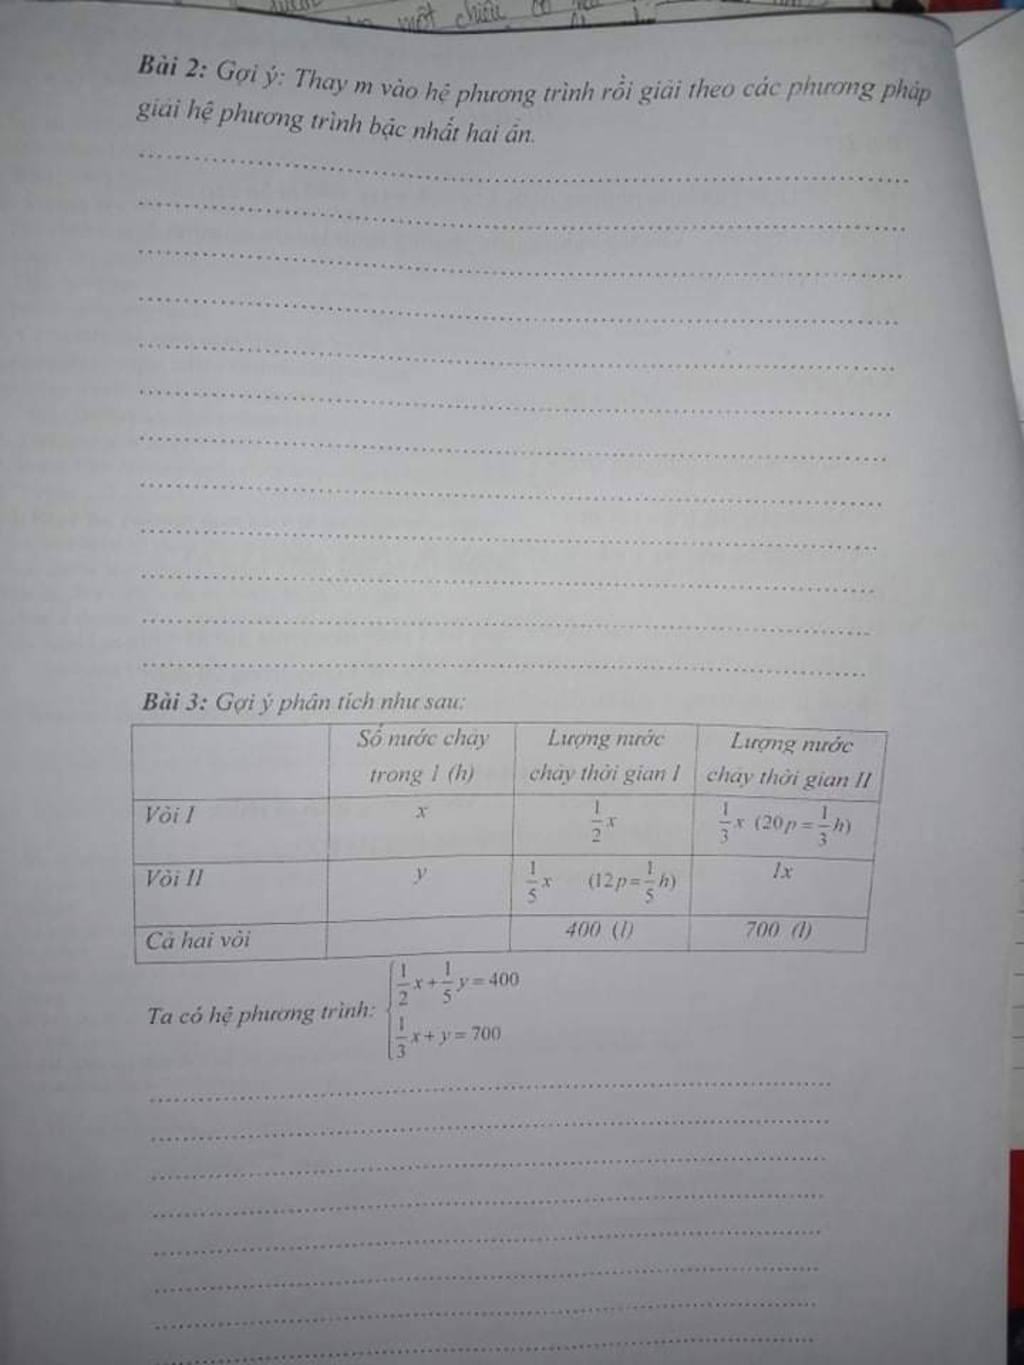 một chiều có
Bài 2: Gợi ý: Thay m vào hệ phương trình rồi giải theo các phương pháp
giải hệ phương trình bậc nhất hai ẩn.
Bài 3: Gợi ý phân tích như sau:
Số nước chảy trong 1 (h) Lượng nước chảy thời gian I Lượng nước chảy thời gian II
Vòi I x 1/2 x 1/3 x (20p = 1/3 h)
Vòi II y 1/5 x (12p = 1/5 h) 1x
Cả hai vòi 400 (l) 700 (l)
Ta có hệ phương trình: { 1/2 x + 1/5 y = 400
1/3 x + y = 700